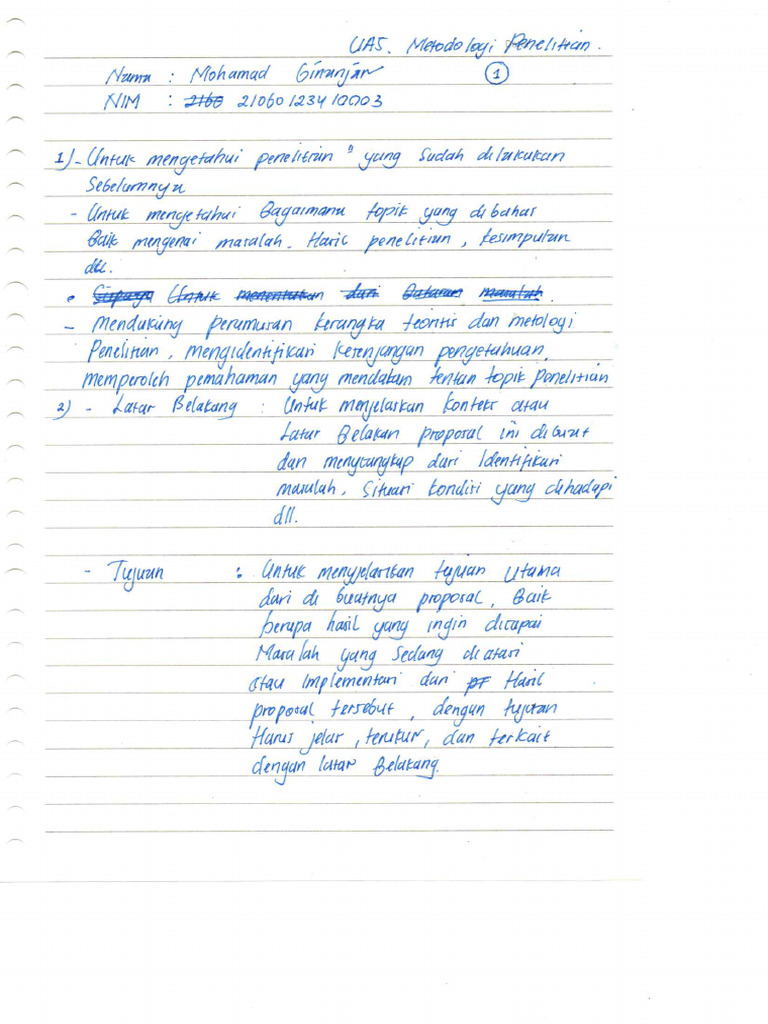 UAS. Metodologi Penelitian.
Nama : Mohamad Ginanjar
1
NIM : 2160 2106012341 0003
1) - Untuk mengetahui penelitian " yang sudah dilakukan
Sebelumnya
- Untuk mengetahui Bagaimana topik yang dibahas
Baik mengenai masalah. Hasil penelitian, kesimpulan
dll.
• Supaya Untuk menentukan dari Batasan masalah.
- Mendukung perumusan kerangka teoritis dan metologi
Penelitian, mengidentifikasi kesenjangan pengetahuan,
memperoleh pemahaman yang mendalam tentan topik penelitian
2) - Latar Belakang : Untuk menjelaskan konteks atau
Latar Belakan proposal ini dibuat
dan mencangkap dari Identifikasi
masalah, Situasi kondisi yang dihadapi
dll.
- Tujuan : Untuk menyjelaskan tujuan Utama
dari di buatnya proposal, Baik
berupa hasil yang ingin dicapai
Masalah yang Sedang diatasi
atau Implementasi dari Hasil
proposal tersebut, dengan tujuan
Harus jelas, terukur, dan terkait
dengan latar Belakang.